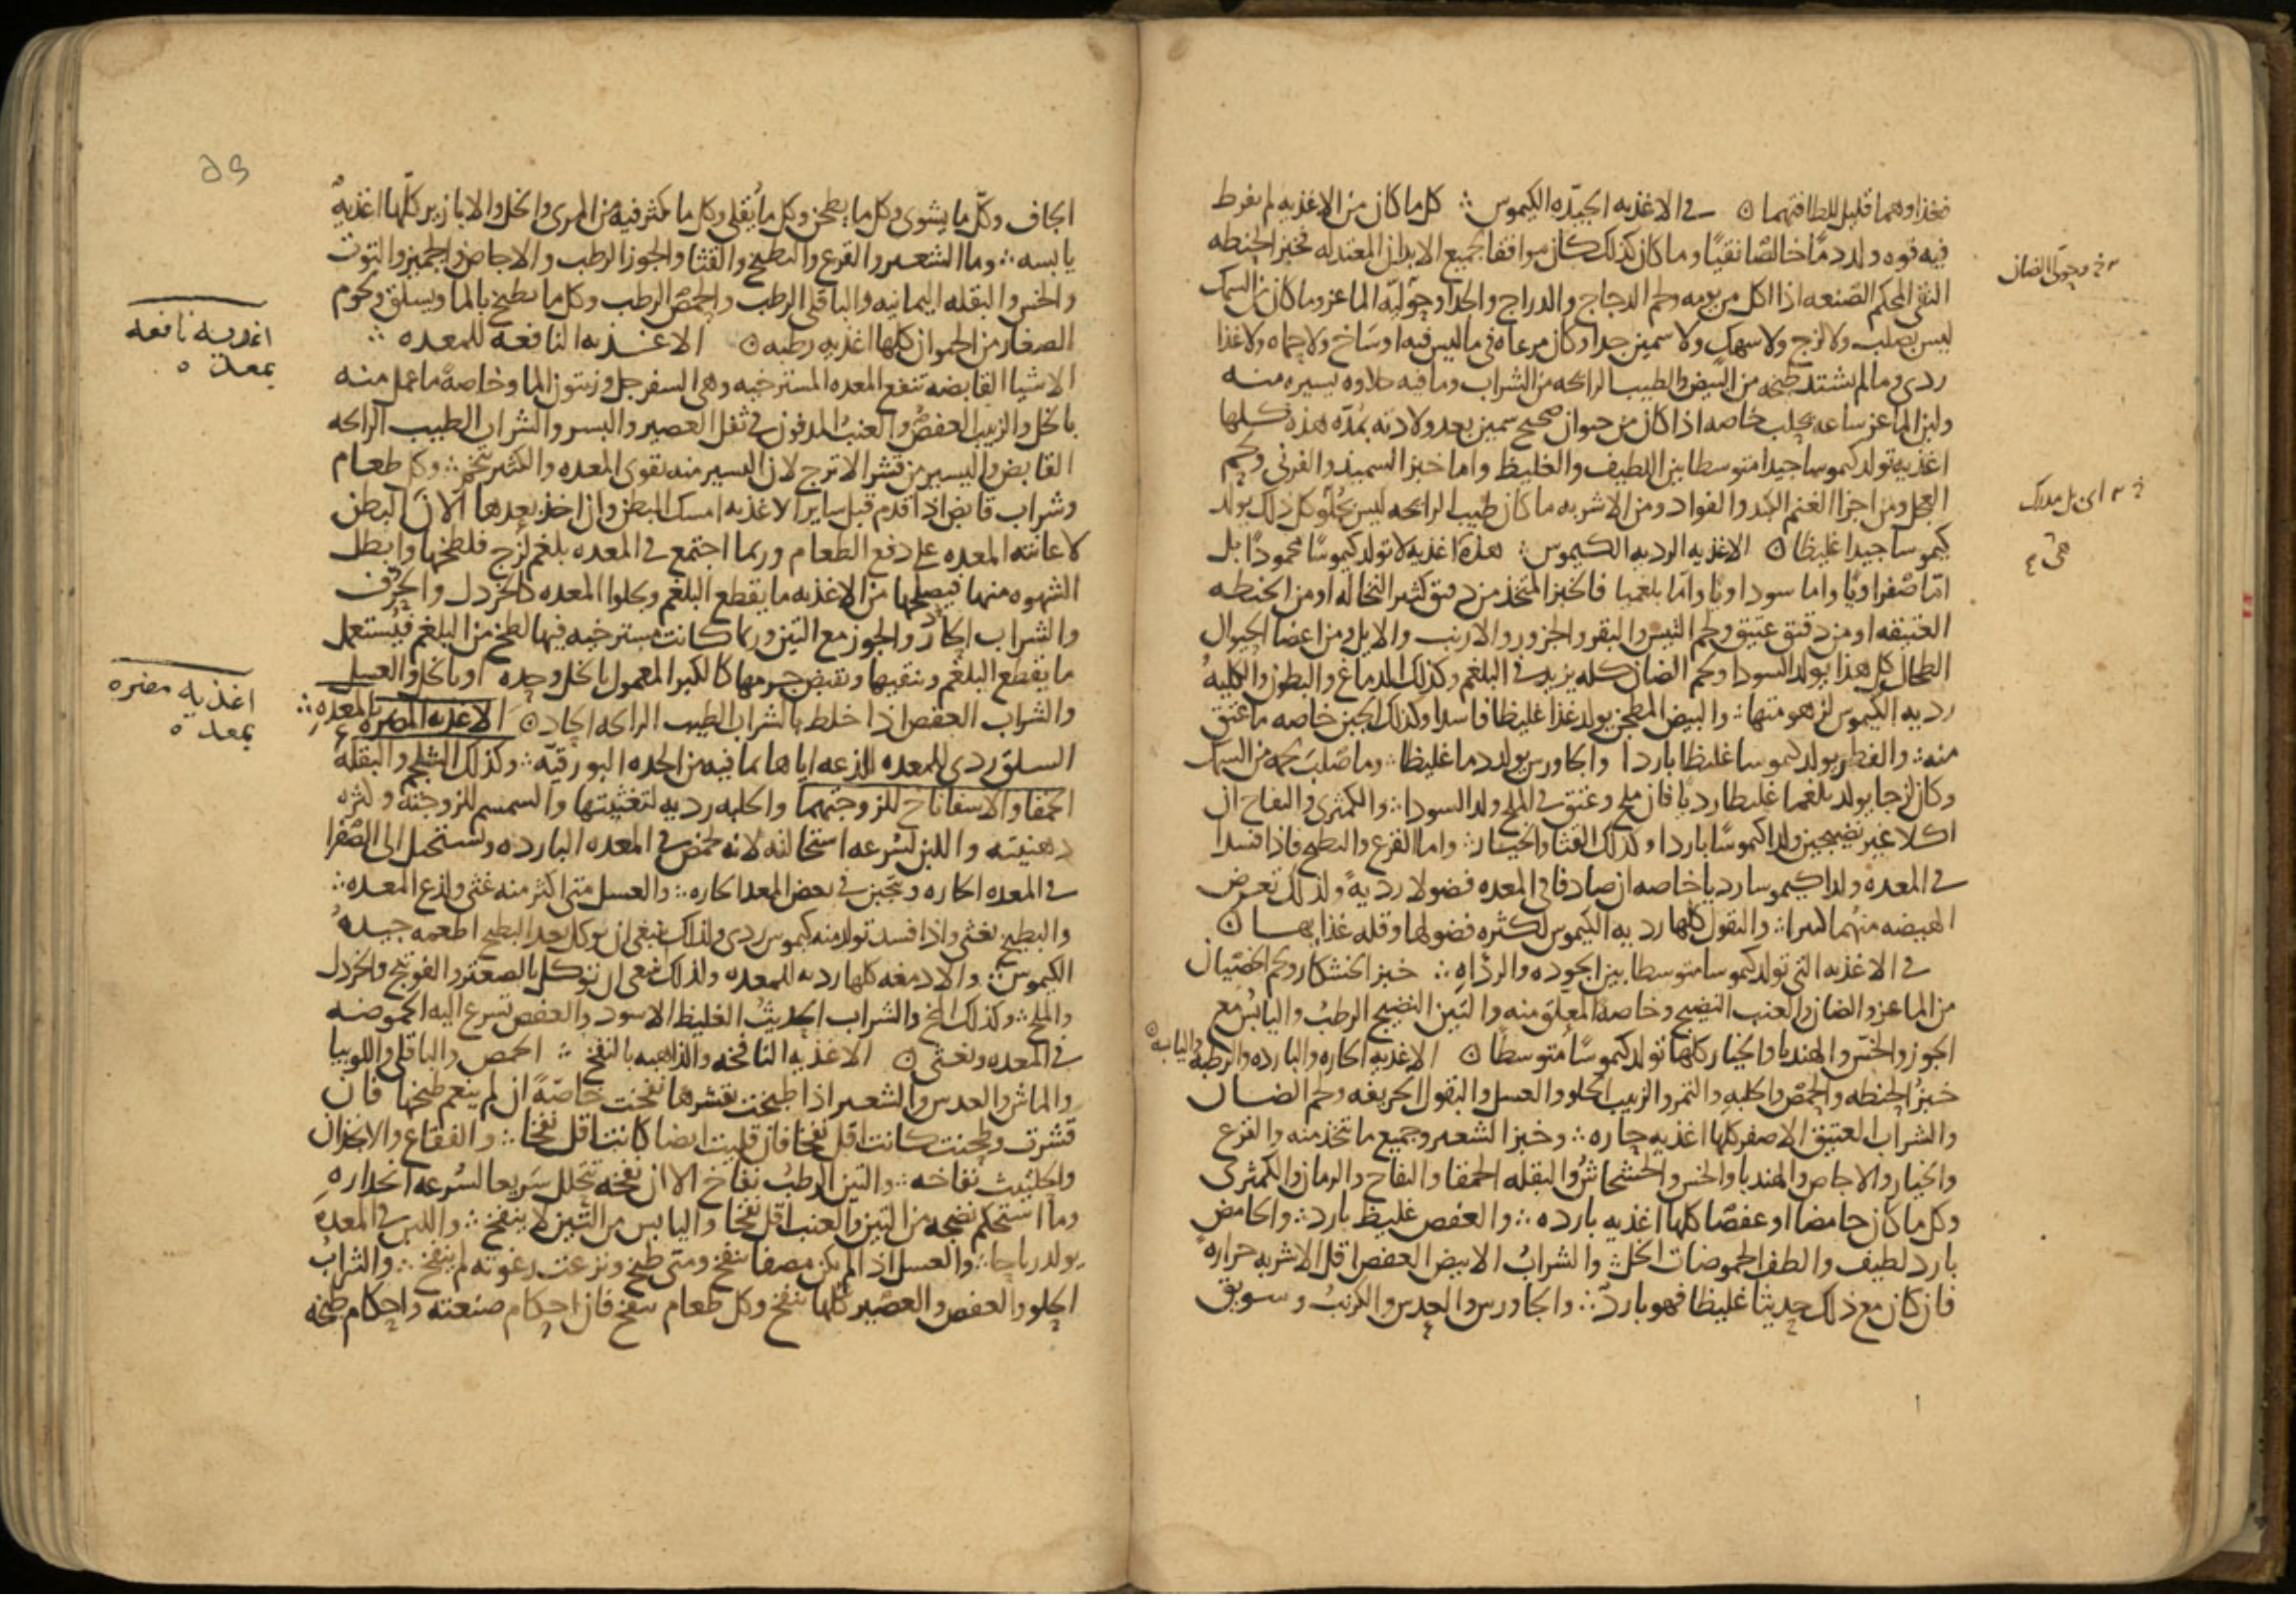 فغذاوهما قليل للطافتهما ۞ في الاغذيه الجيّده الكيموس ؞ كل ما كان من الاغذيه لم يفرط
فيه قوه ولد دمًا خالصًا نقيًا وما كان كذلك كان موافقا لجميع الابدان المعتدله فخبز الحنطه
النقى المحكم الصنعه اذا اكل من يومه ولحم الدجاج والدراج والجدا وحوليّه الماعز وما كان من السمك
ليس بصلب ولا لزج ولا سهك ولا سمين جدا وكان مرعاه في ما ليس فيه اوساخ ولا حماه ولا غذا
ردى وما لم يشتد طبخه من البيض والطيب الرائحه من الشراب وما فيه حلاوه يسيره منه
ولبن الماعز ساعه يحلب خاصه اذا كان من حيوان صحيح سمين بعد ولادته بمُدّه هذه كلها
اغذيه تولد كيموسا جيدا متوسطا بين اللطيف والغليظ واما خبز السميد والفرني ولحم
العجل ومن اجزا الغنم الكبد والفواد ومن الاشربه ما كان طيب الرائحه ليس بحُلو كل ذلك يولد
كيموسا جيدا غليظا ۞ الاغذيه الرديه الكيموس ؞ هذه اغذيه لا تولد كيموسًا محمودًا بل
امّا صفراويًا واما سوداويًا وامّا بلغميا فالخبز المتخذ من دقيق كثير النخاله او من الحنطه
العتيقه او من دقيق عتيق ولحم التيس والبقر والجزور والارنب والايل ومن اعضا الحيوان
الطحال كل هذا يولد السودا ولحم الضان كله يزيد في البلغم وكذلك الدماغ والبطون والكليهُ
رديه الكيموس لزهومتها ؞ والبيض المطجن يولد غذا غليظا فاسدا وكذلك الجبن خاصه ما عتق
منه ؞ والفطر يولد كيموسا غليظا باردا والجاورس يولد دما غليظا ؞ وما صلب لحمه من السمك
وكان لزجا يولد بلغما غليظا رديًا فان ملح وعتق في الملح ولد السودا ؞ والكمثرى والتفاح ان
اكلا غير نضيجين ولدا كيموسًا باردا وكذلك القثا والخيار ؞ واما القرع والبطيخ فاذا فسدا
في المعده ولدا كيموسا رديا خاصه ان صادفا في المعده فضولا رديهً ولذلك تعرض
الهيضه منهما كثيرا ؞ والبقول كلها رديه الكيموس لكثره فضولها وقله غذايها ۞
في الاغذيه التي تولد كيموسا متوسطا بين الجوده والرداه ؞ خبز الخشكار ولحم الخصيان
من الماعز والضان والعنب النضيج وخاصه المعلق منه والتين النضيج الرطبُ واليابسُ مع
الجوز والخسّ والهندبا والخيار كلها تولد كيموسًا متوسطًا ۞ الاغذيه الحاره والبارده والرطبه واليابسه
خبزُ الحنطه والحمّص والحلبهِ والتمر والزبيب الحلو والعسل والبقول الحريفه ولحم الضان
والشراب العتيق الاصفر كلها اغذيه حاره ؞ وخبز الشعير وجميع ما يتخذ منه والقرع
والخيار والاجاص والهندبا والخس والخشخاشُ والبقله الحمقا والتفاح والرمان والكمثرى
وكل ما كان حامضا او عفصًا كلها اغذيه بارده ؞ والعفص غليظ بارد ؞ والحامض
بارد لطيف والطف الحموضات الخل ؞ والشرابُ الابيض العفص اقل الاشربه حراره
فان كان مع ذلك حديثا غليظا فهو باردٌ ؞ والجاورس والعدس والكرنبُ وسويق
وحوليّ الضان
الجاف وكل ما يشوى وكل ما يطجن وكل ما يُقلى وكل ما كثر فيه من المرى والخل والابازير كلّها اغذيهٌ
يابسه ؞ وما الشعير والقرع والبطيخ والقثا والجوز الرطب والاجاص والجميز والتوث
والخس والبقله اليمانيه والباقلى الرطب والحمّص الرطب وكل ما يطبخ بالما ويسلق ولحوم
الصغار من الحيوان كلها اغذيه رطبه ۞ الاغذيه النافعه للمعده ؞
الاشيا القابضه تنفع المعده المسترخيه وهى السفرجل وزيتون الما وخاصهً ما عمل منه
بالخل والزبيب العفصُ والعنب المدفون في ثفل العصير والبسر والشراب الطيب الرائحه
القابض واليسير من قشر الاترج لان اليسير منه يقوى المعده والكثير يتخم ؞ وكل طعام
وشراب قابض اذا قدم قبل ساير الاغذيه امسك البطن وان اخذ بعدها الانَ البطن
لاعانته المعده على دفع الطعام وربما اجتمع في المعده بلغم لزج فلطخها وابطل
الشهوه منها فيصلحها من الاغذيه ما يقطع البلغم ويجلوا المعده كالخردل والحرف
والشراب الحار والجوز مع التين وربما كانت مسترخيه فيها لطخ من البلغم فيستعمل
ما يقطع البلغم وينقيها ويقبض جرمها كالكبر المعمول بالخل وحده او بالخل والعسل
والشراب العفص اذا خلط بالشراب الطيب الرائحه الحاد ۞ الاغذيه المضره بالمعده ؞
السلق ردى للمعده للذعه اياها بما فيه من الحده البورقيّه ؞ وكذلك الشلجم والبقله
الحمقا والاسفاناخ للزوجتهما والحلبه رديه لتغثيتها والسمسم للزوجته وكثره
دهنيته واللبن لسُرعه استحالته لانه يحمض في المعده البارده ويستحيل الى الصفرا
في المعده الحاره ويتجبن في بعض المعد الحاره ؞ والعسل متى اكثر منه غثى ولذع المعده ؞
والبطيخ يغثى واذا فسد تولد منه كيموس ردى ولذلك ينبغى ان يوكل بعد البطيخ اطعمه جيدهُ
الكيموس ؞ والادمغه كلها رديه للمعده ولذلك ينبغى ان توكل بالصعتر والفوتنج والخردل
والملح ؞ وكذلك المخ والشراب الحديثُ الغليظ الاسود والعفص تسرع اليه الحموضه
في المعده ويغثى ۞ الاغذيه النافخه والذاهبه بالنفخ ؞ الحمص والباقلى واللوبيا
والماش والعدس والشعير اذا طبخت بقشرها نفخت خاصّةً ان لم ينعم طبخها فان
قشرت وطجنت كانت اقل نفخا فان قليت ايضا كانت اقل نفخا ؞ والفقاع والانجدان
والحلتيث نفاخه ؞ والتين الرطبُ نفاخ الا ان نفخه يتحلل سريعا لسُرعه انحداره
وما استحكم نضجه من التين والعنب اقل نفخا واليابس من التين لا ينفخ ؞ واللبن في المعدهِ
يولد رياحا ؞ والعسل اذا لم يكن مصفا ينفخ ومتى طبخ ونزعت رغوته لم ينفخ ؞ والشرابُ
الحلو والعفص والعصير كلها ينفخ وكل طعام ينفخ فان احكام صنعته واحكام طبخه
اغذيه نافعه
بمعده
اغذيه مضره
بمعده